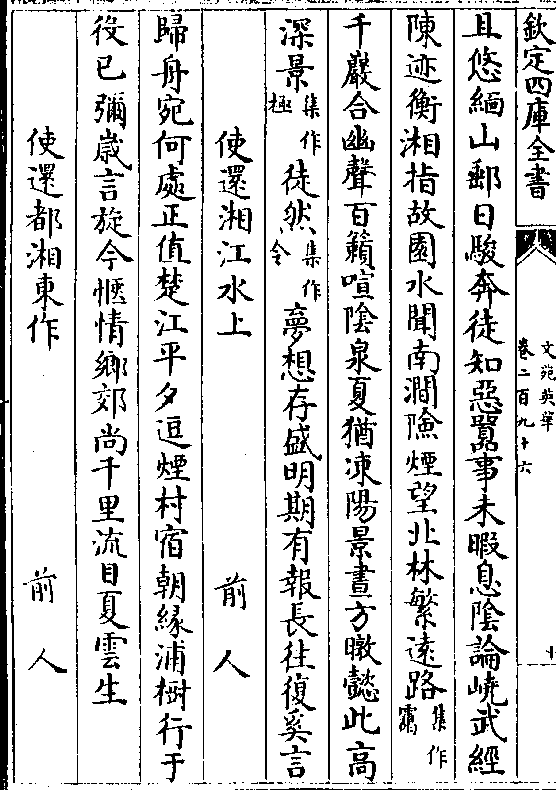 欽定四庫全書
文苑英華
卷二百九十六
十
且悠緬山郵日駿奔徒知惡囂事未暇息陰論嶢武經
陳迹衡湘指故園水聞南澗險煙望北林繁遠路集作霭
千巖合幽聲百籟喧陰泉夏猶凍陽景晝方暾懿此高
深景集作極徒然集作令夢想存盛明期有報長往復奚言
使還湘江水上 前人
歸舟宛何處正值楚江平夕逗煙村宿朝緣浦樹行于
役已彌歲言旋今愜情鄉郊尚千里流目夏雲生
使還都湘東作 前人